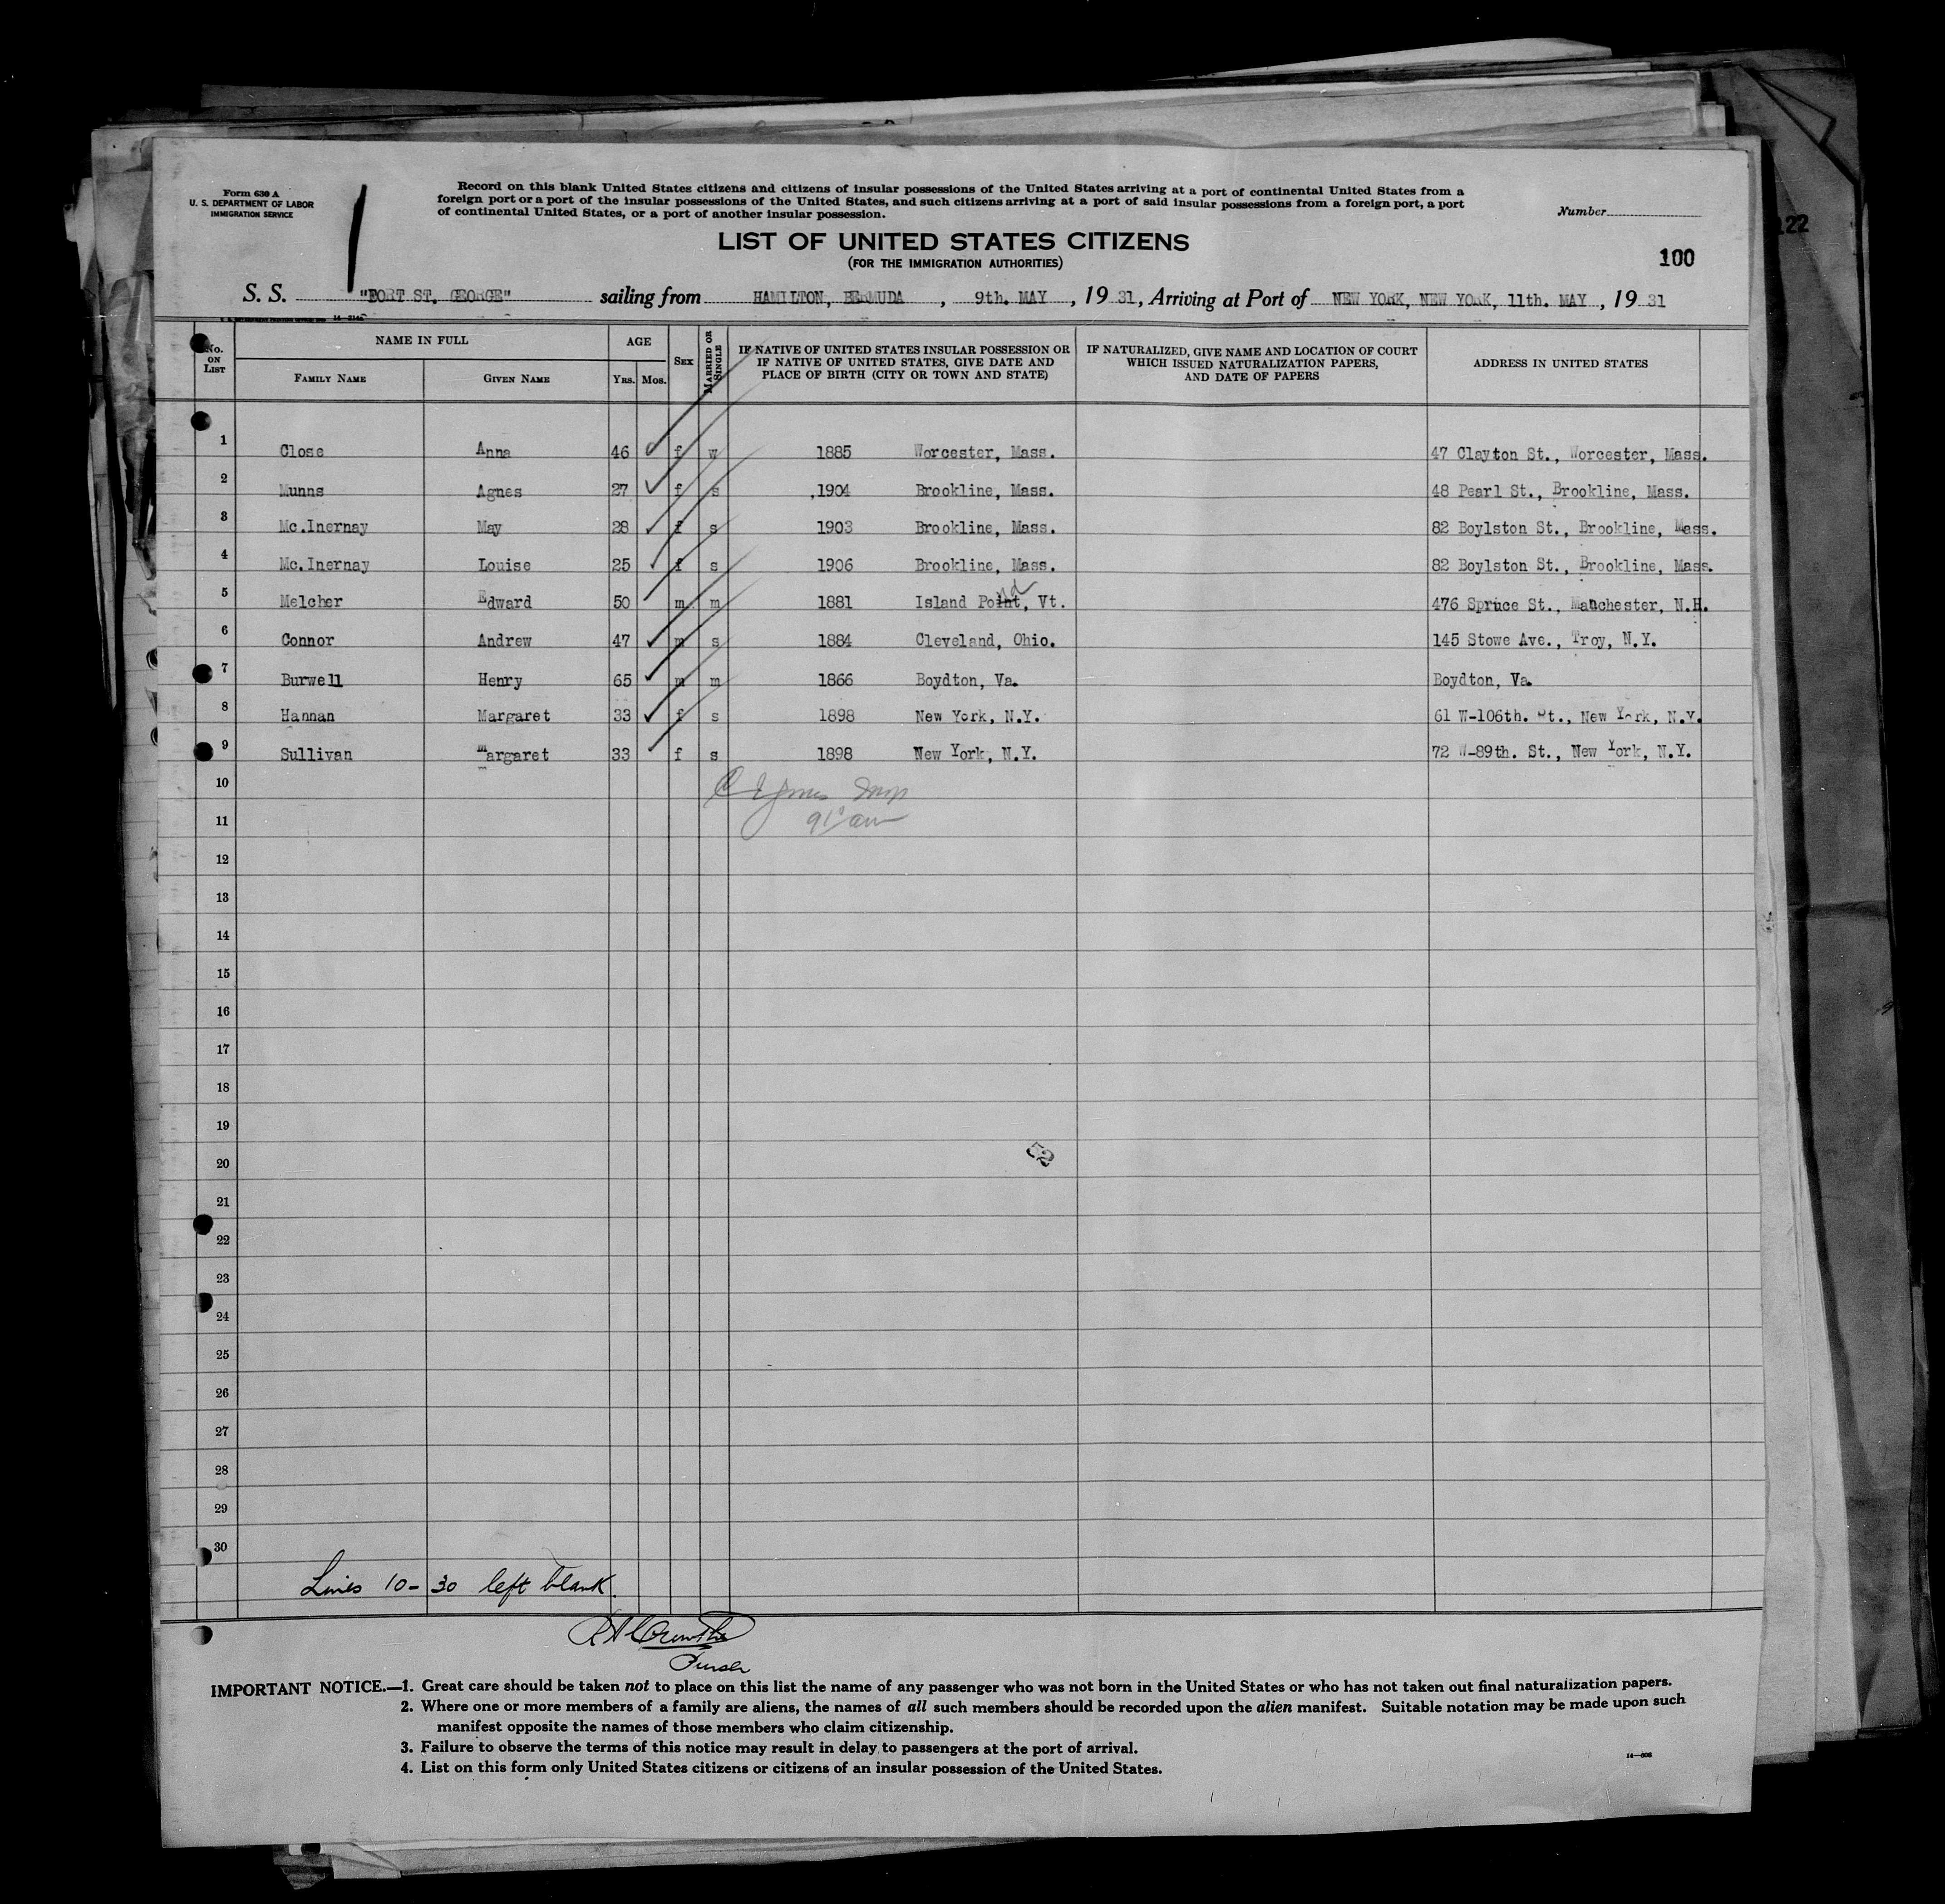 Form 630 A
U. S. DEPARTMENT OF LABOR
IMMIGRATION SERVICE
Record on this blank United States citizens and citizens of insular possessions of the United States arriving at a port of continental United States from a
foreign port or a port of the insular possessions of the United States, and such citizens arriving at a port of said insular possessions from a foreign port, a port
of continental United States, or a port of another insular possession.
Number
122
LIST OF UNITED STATES CITIZENS
(FOR THE IMMIGRATION AUTHORITIES)
100
S. S. "FORT ST. GEORGE" sailing from HAMILTON, BERMUDA, 9th. MAY, 19 31, Arriving at Port of NEW YORK, NEW YORK, 11th. MAY, 19 31
No. ON LIST NAME IN FULL AGE SEX MARRIED OR SINGLE IF NATIVE OF UNITED STATES INSULAR POSSESSION OR IF NATIVE OF UNITED STATES, GIVE DATE AND PLACE OF BIRTH (CITY OR TOWN AND STATE) IF NATURALIZED, GIVE NAME AND LOCATION OF COURT WHICH ISSUED NATURALIZATION PAPERS, AND DATE OF PAPERS ADDRESS IN UNITED STATES
FAMILY NAME GIVEN NAME YRS. MOS.
1 Close Anna 46 f w 1885 Worcester, Mass. 47 Clayton St., Worcester, Mass.
2 Munns Agnes 27 f s 1904 Brookline, Mass. 48 Pearl St., Brookline, Mass.
3 Mc.Inernay May 28 f s 1903 Brookline, Mass. 82 Boylston St., Brookline, Mass.
4 Mc.Inernay Louise 25 f s 1906 Brookline, Mass. 82 Boylston St., Brookline, Mass.
5 Melcher Edward 50 m m 1881 Island Point, Vt. 476 Spruce St., Manchester, N.H.
6 Connor Andrew 47 m s 1884 Cleveland, Ohio. 145 Stowe Ave., Troy, N.Y.
7 Burwell Henry 65 m m 1866 Boydton, Va. Boydton, Va.
8 Hannan Margaret 33 f s 1898 New York, N.Y. 61 W-106th. St., New York, N.Y.
9 Sullivan margaret 33 f s 1898 New York, N.Y. 72 W-89th. St., New York, N.Y.
10
11
12
13
14
15
16
17
18
19
20
52
21
22
23
24
25
26
27
28
29
30
Lines 10-30 left blank.
Purser
IMPORTANT NOTICE.—1. Great care should be taken not to place on this list the name of any passenger who was not born in the United States or who has not taken out final naturalization papers.
2. Where one or more members of a family are aliens, the names of all such members should be recorded upon the alien manifest. Suitable notation may be made upon such
manifest opposite the names of those members who claim citizenship.
3. Failure to observe the terms of this notice may result in delay to passengers at the port of arrival.
4. List on this form only United States citizens or citizens of an insular possession of the United States.